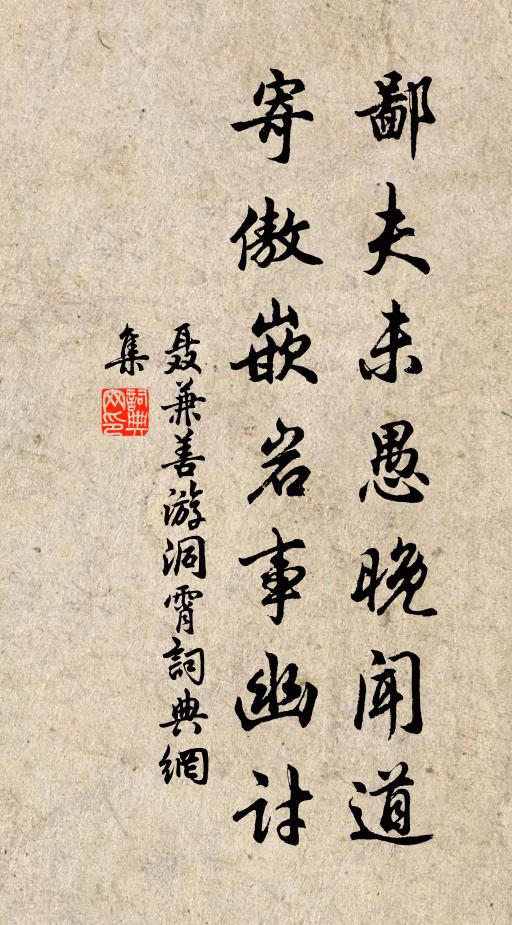 鄙夫未愚晚闻道
寄傲嵌岩事幽讨
聂兼善游洞霄詞典網
集
詞典
网印